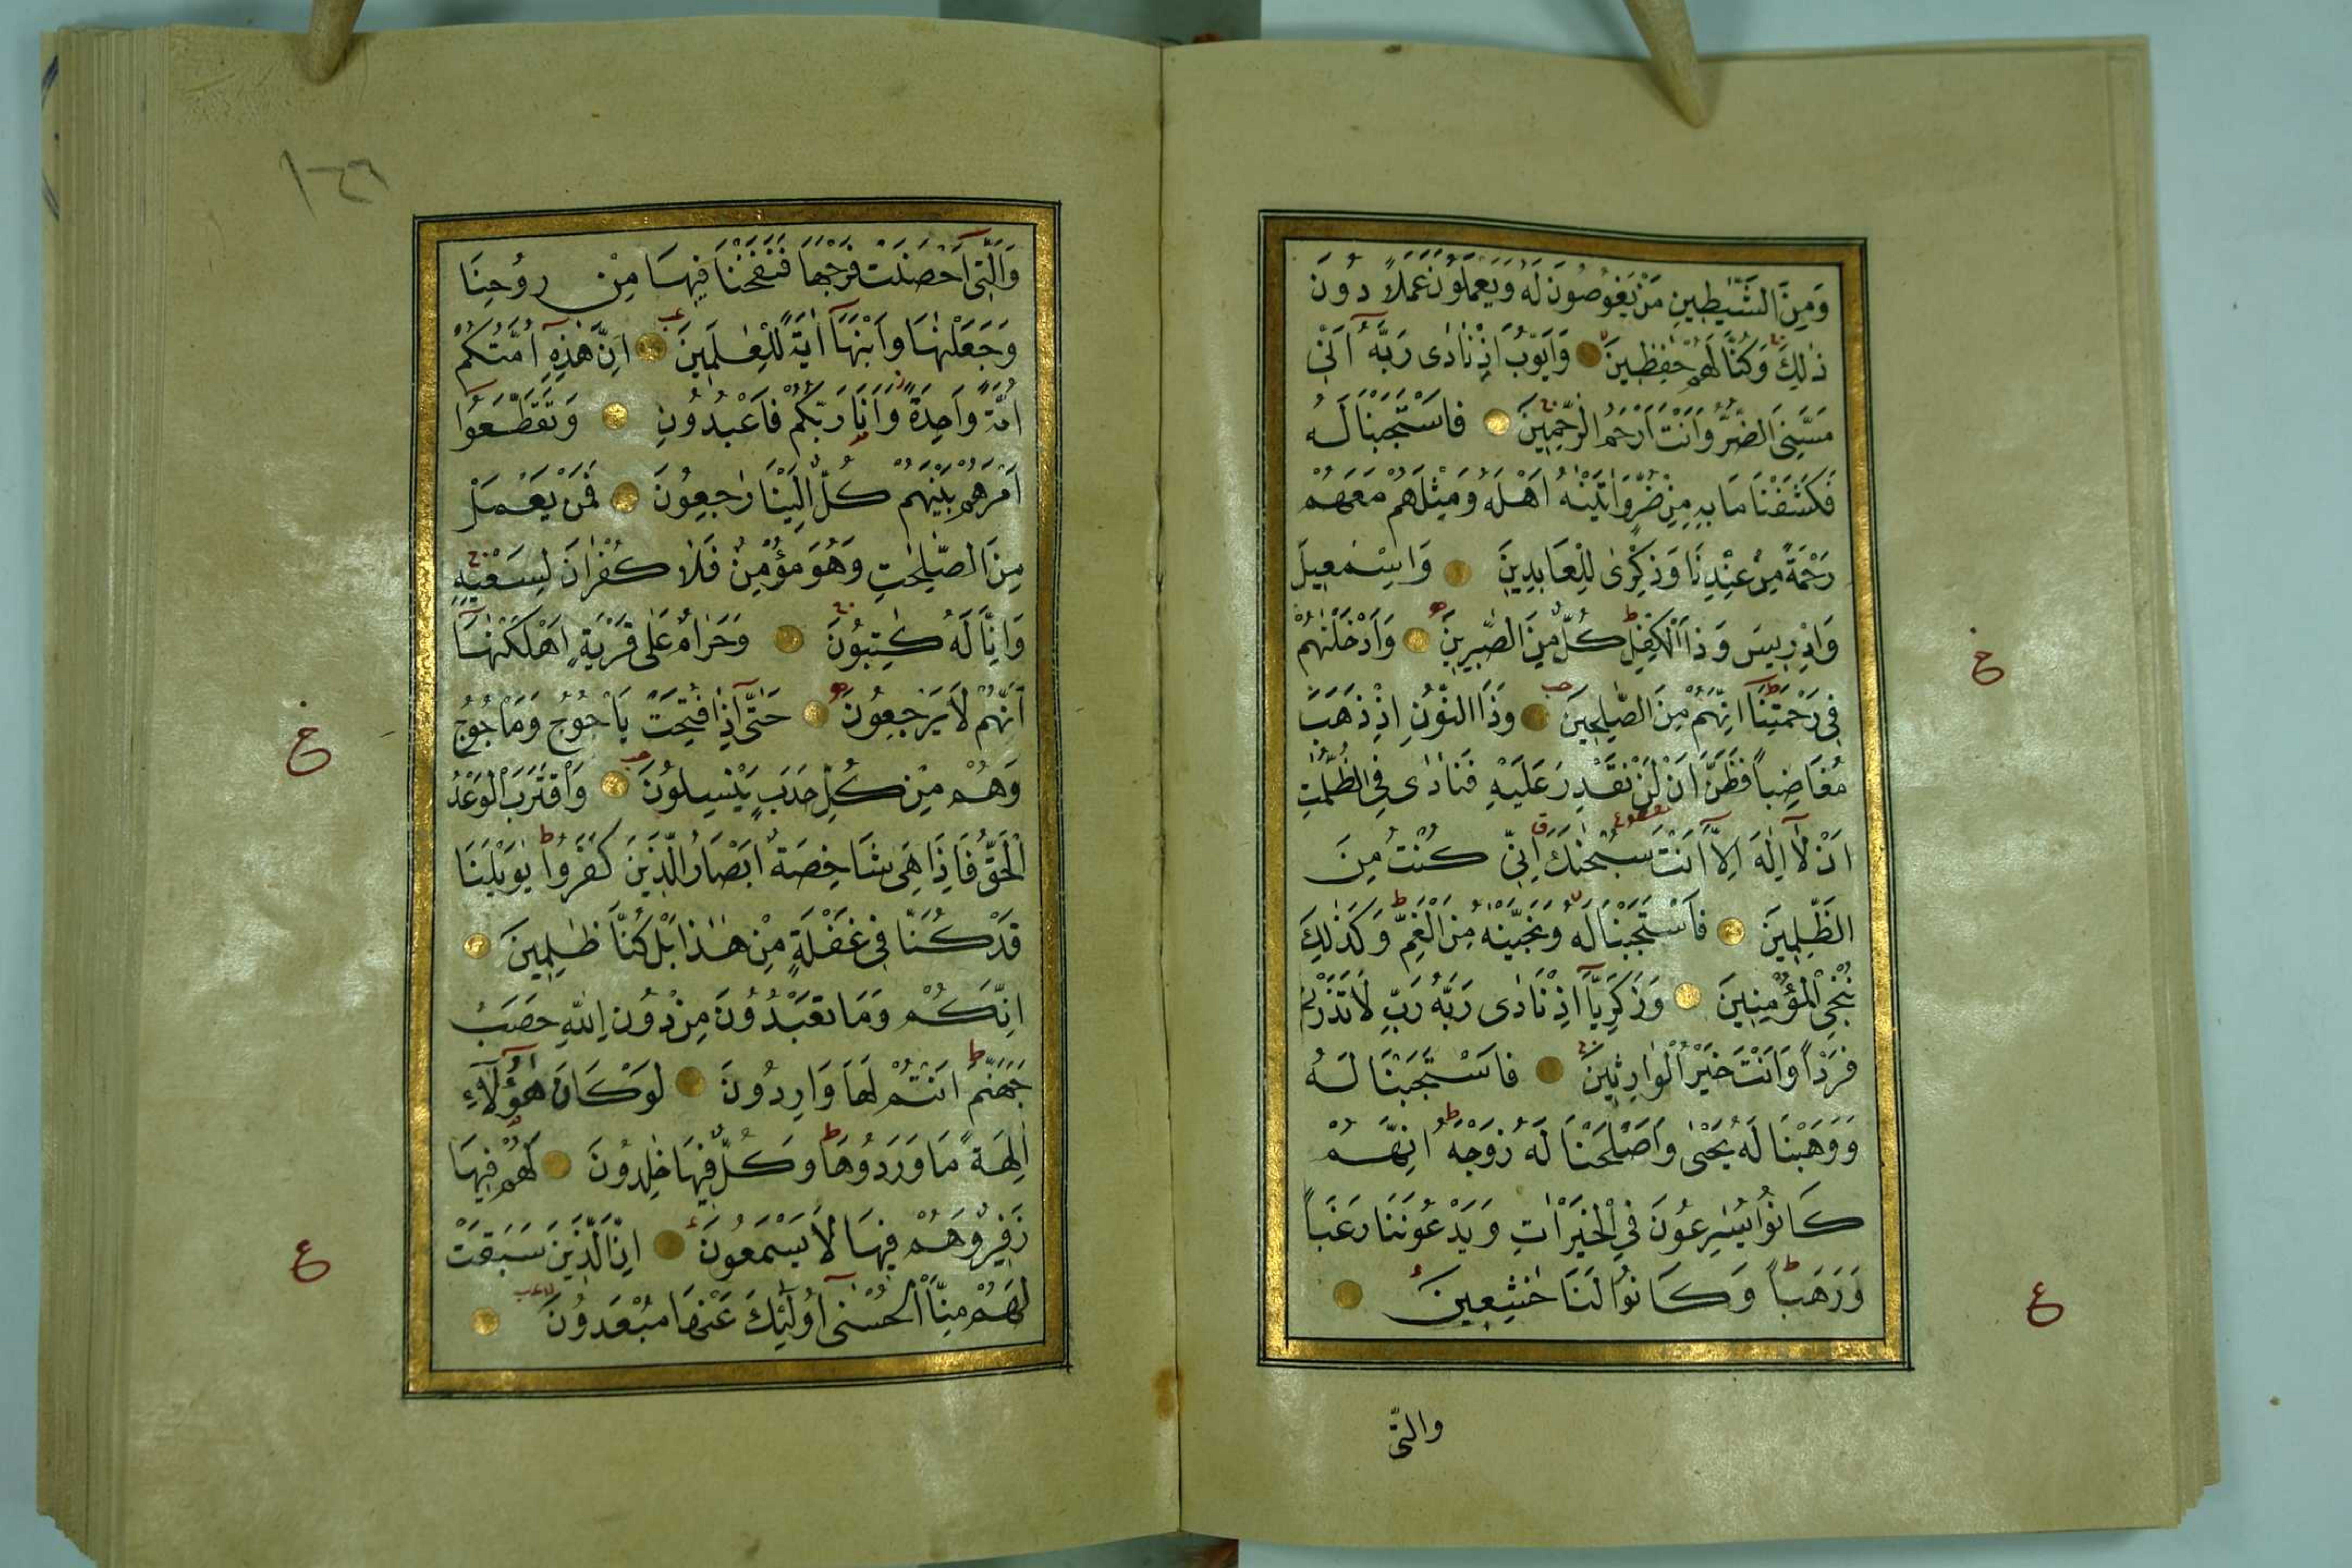 وَمِنَ الشَّيٰطِينِ مَنْ يَغُوصُونَ لَهُ وَيَعْمَلُونَ عَمَلًا دُونَ
ذٰلِكَ وَكُنَّا لَهُمْ حٰفِظِينَ وَاَيُّوبَ اِذْ نَادٰى رَبَّهُٓ اَنّٖى
مَسَّنِيَ الضُّرُّ وَاَنْتَ اَرْحَمُ الرّٰحِمِينَ فَاسْتَجَبْنَا لَهُ
فَكَشَفْنَا مَا بِهٖ مِنْ ضُرٍّ وَاٰتَيْنٰهُ اَهْلَهُ وَمِثْلَهُمْ مَعَهُمْ
رَحْمَةً مِنْ عِنْدِنَا وَذِكْرٰى لِلْعَابِدِينَ وَاِسْمٰعِيلَ
وَاِدْرِيسَ وَذَا الْكِفْلِ كُلٌّ مِنَ الصّٰبِرِينَ وَاَدْخَلْنٰهُمْ
فِي رَحْمَتِنَآ اِنَّهُمْ مِنَ الصّٰلِحِينَ وَذَا النُّونِ اِذْ ذَهَبَ
مُغَاضِبًا فَظَنَّ اَنْ لَنْ نَقْدِرَ عَلَيْهِ فَنَادٰى فِي الظُّلُمٰتِ
اَنْ لَآ اِلٰهَ اِلَّآ اَنْتَ سُبْحٰنَكَ اِنّٖى كُنْتُ مِنَ
الظّٰلِمِينَ فَاسْتَجَبْنَا لَهُ وَنَجَّيْنٰهُ مِنَ الْغَمِّ وَكَذٰلِكَ
نُنْجِى الْمُؤْمِنِينَ وَزَكَرِيَّآ اِذْ نَادٰى رَبَّهُ رَبِّ لَا تَذَرْنٖى
فَرْدًا وَاَنْتَ خَيْرُ الْوَارِثِينَ فَاسْتَجَبْنَا لَهُ
وَوَهَبْنَا لَهُ يَحْيٰى وَاَصْلَحْنَا لَهُ زَوْجَهُ اِنَّهُمْ
كَانُوا يُسٰرِعُونَ فِي الْخَيْرَاتِ وَيَدْعُونَنَا رَغَبًا
وَرَهَبًا وَكَانُوا لَنَا خٰشِعِينَ
والتى
خ
ع
وَالَّتٖٓى اَحْصَنَتْ فَرْجَهَا فَنَفَخْنَا فِيهَا مِنْ رُوحِنَا
وَجَعَلْنٰهَا وَابْنَهَآ اٰيَةً لِلْعٰلَمِينَ اِنَّ هٰذِهٖٓ اُمَّتُكُمْ
اُمَّةً وَاحِدَةً وَاَنَا رَبُّكُمْ فَاعْبُدُونِ وَتَقَطَّعُوا
اَمْرَهُمْ بَيْنَهُمْ كُلٌّ اِلَيْنَا رٰجِعُونَ فَمَنْ يَعْمَلْ
مِنَ الصّٰلِحٰتِ وَهُوَ مُؤْمِنٌ فَلَا كُفْرَانَ لِسَعْيِهٖ
وَاِنَّا لَهُ كٰتِبُونَ وَحَرَامٌ عَلٰى قَرْيَةٍ اَهْلَكْنٰهَآ
اَنَّهُمْ لَا يَرْجِعُونَ حَتّٰٓى اِذَا فُتِحَتْ يَاْجُوجُ وَمَاْجُوجُ
وَهُمْ مِنْ كُلِّ حَدَبٍ يَنْسِلُونَ وَاقْتَرَبَ الْوَعْدُ
الْحَقُّ فَاِذَا هِيَ شَاخِصَةٌ اَبْصَارُ الَّذِينَ كَفَرُوا يٰوَيْلَنَا
قَدْ كُنَّا فِي غَفْلَةٍ مِنْ هٰذَا بَلْ كُنَّا ظٰلِمِينَ
اِنَّكُمْ وَمَا تَعْبُدُونَ مِنْ دُونِ اللّٰهِ حَصَبُ
جَهَنَّمَ اَنْتُمْ لَهَا وَارِدُونَ لَوْ كَانَ هٰٓؤُلَآءِ
اٰلِهَةً مَا وَرَدُوهَا وَكُلٌّ فِيهَا خٰلِدُونَ لَهُمْ فِيهَا
زَفِيرٌ وَهُمْ فِيهَا لَا يَسْمَعُونَ اِنَّ الَّذِينَ سَبَقَتْ
لَهُمْ مِنَّا الْحُسْنٰٓى اُولٰٓئِكَ عَنْهَا مُبْعَدُونَ
خ
ع